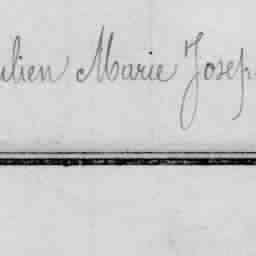 ulien Marie Josep